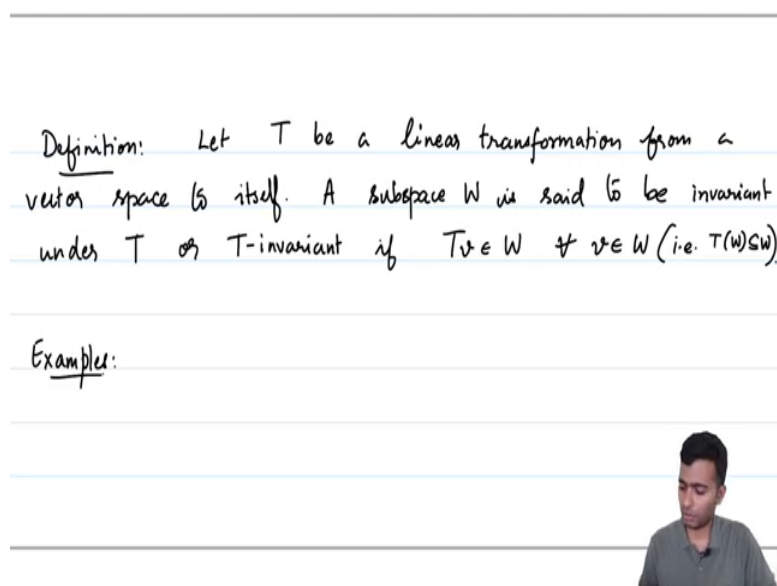 Definition: Let T be a linear transformation from a
vector space to itself. A subspace W is said to be invariant
under T or T-invariant if Tv ∈ W ∀ v ∈ W (i.e. T(W) ⊆ W).
Examples: